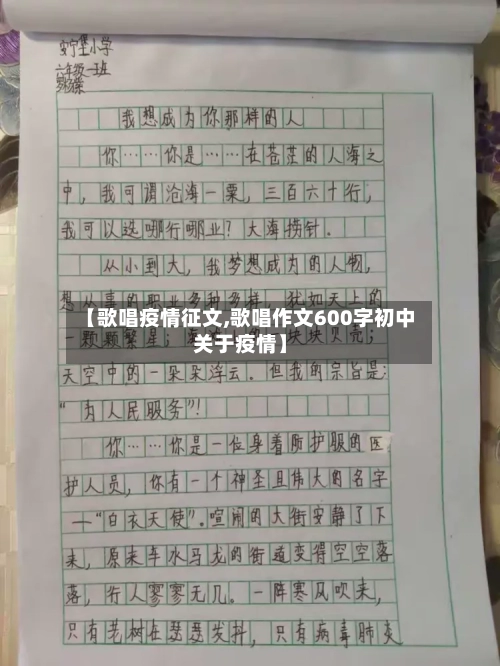 安宁堡小学
六年级一班
我想成为你那样的人
你……你是……在苍茫的人海之
中，我可谓沧海一粟，三百六十行，
我可以选哪行哪业？大海捞针．
从小到大，我梦想成为的人物，
想从事的职业多种多样，犹如天上的
【歌唱疫情征文,歌唱作文600字初中
一颗颗繁星；块块贝壳；
关于疫情】
天空中的一朵朵浮云．但我的宗旨是：
“为人民服务”！
你……你是一位身着防护服的医
护人员，你有一个神圣且伟大的名字
—“白衣天使”．喧闹的大街安静了下
来，原来车水马龙的街道变得空空落
落，行人寥寥无几。一阵寒风吹来，
只有老树在瑟瑟发抖，只有病毒肺炎